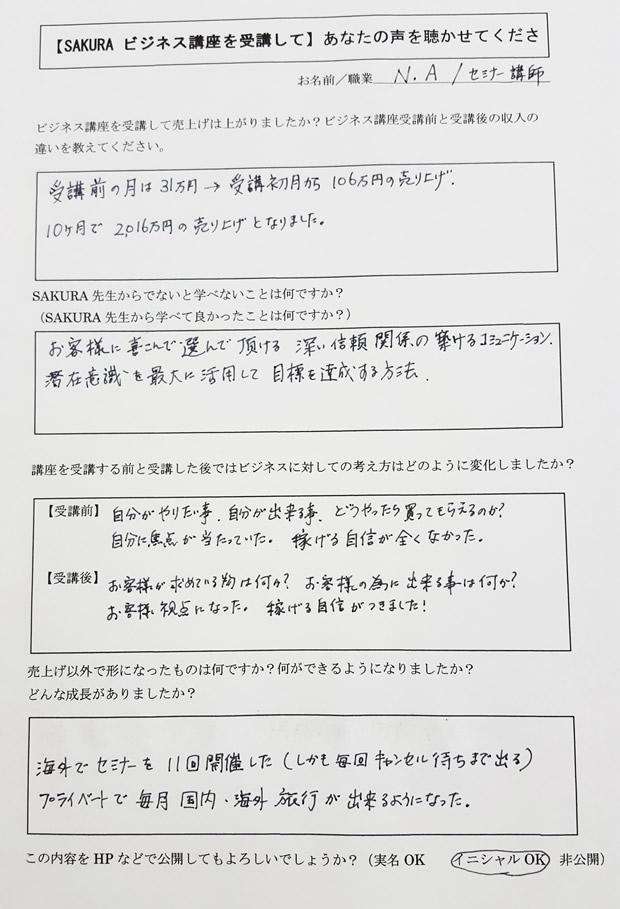 【SAKURA ビジネス講座を受講して】あなたの声を聴かせてくださ
お名前／職業 N.A / セミナー講師
ビジネス講座を受講して売上げは上がりましたか？ビジネス講座受講前と受講後の収入の
違いを教えてください。
受講前の月は31万円→受講初月から 106万円の売り上げ.
10ヶ月で 2,016万円の売り上げとなりました。
SAKURA 先生からでないと学べないことは何ですか？
（SAKURA 先生から学べて良かったことは何ですか？）
お客様に喜こんで選んで頂ける 深い信頼関係の築けるコミュニケーション.
潜在意識を最大に活用して目標を達成する方法.
講座を受講する前と受講した後ではビジネスに対しての考え方はどのように変化しましたか？
【受講前】 自分がやりたい事、自分が出来る事、どうやったら買ってもらえるのか?
自分に焦点が当たっていた。 稼げる自信が全くなかった。
【受講後】 お客様が求めている物は何か? お客様の為に出来る事は何か?
お客様視点になった。 稼げる自信がつきました!
売上げ以外で形になったものは何ですか？何ができるようになりましたか？
どんな成長がありましたか？
海外でセミナーを 11回開催した (しかも毎回キャンセル待ちまで出る)
プライベートで毎月国内・海外旅行が出来るようになった。
この内容を HP などで公開してもよろしいでしょうか？（実名 OK イニシャル OK 非公開）